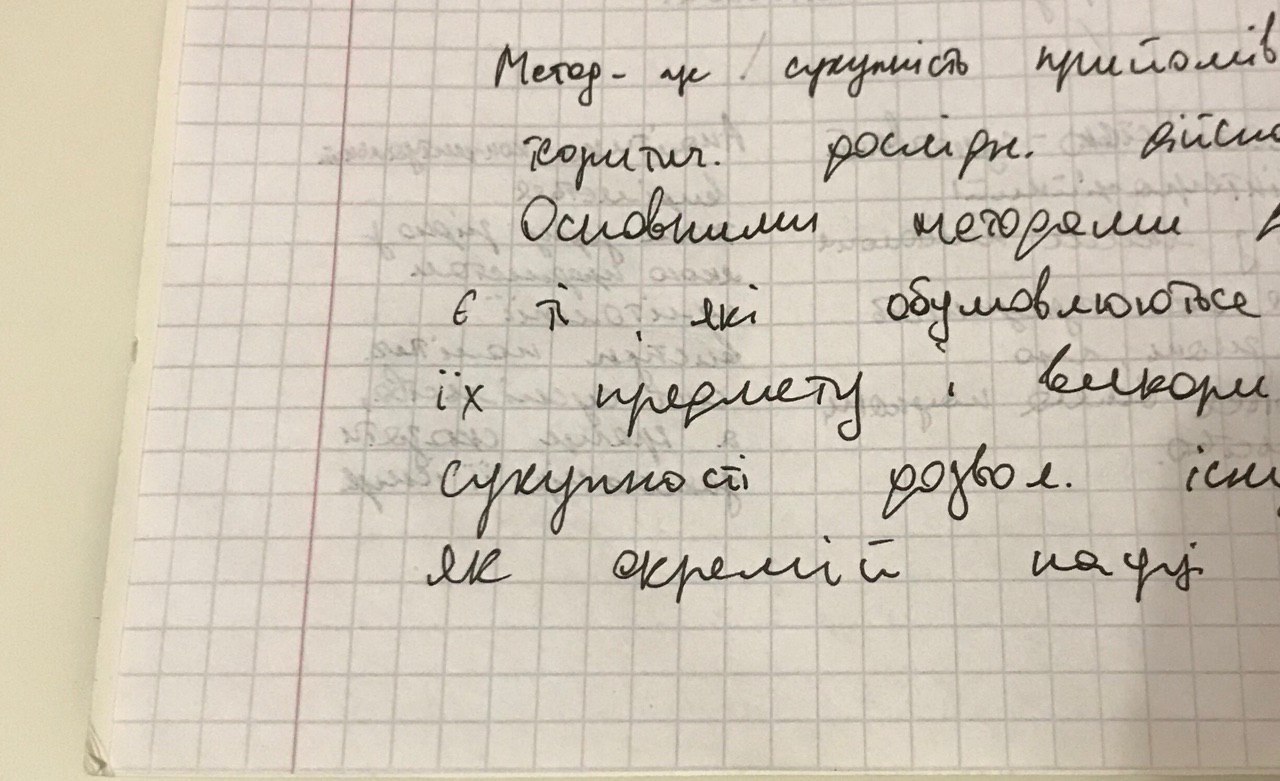 Метод - це сукупність прийомів
теоритич. дослідж. дійсн
Основними методами
є ті, які обумовлюються
їх предмету і викори
сукупності дозвол. існ
як окремій науці